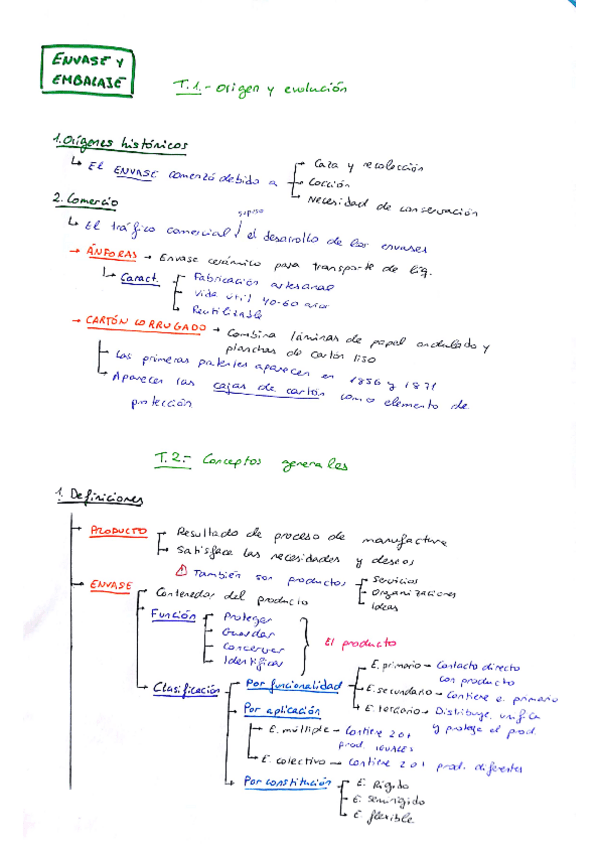 ENVASE Y
EMBALAJE
T.1.- Origen y evolución
1. Orígenes históricos
El ENVASE comenzó debido a
Caza y recolección
Cocción
Necesidad de conservación
2. Comercio
supuso
El tráfico comercial / el desarrollo de los envases
→ ÁNFORAS → Envase cerámico para transporte de líq.
Caract.
Fabricación artesanal
Vida útil 40-60 años
Reutilizable
→ CARTÓN CORRUGADO → Combina láminas de papel ondulado y
planchas de cartón liso
Las primeras patentes aparecen en 1856 y 1871
Aparecen las cajas de cartón como elemento de
protección
T.2.- Conceptos generales
1. Definiciones
PRODUCTO
Resultado de proceso de manufactura
Satisface las necesidades y deseos
⚠ También son productos
Servicios
Organizaciones
Ideas
ENVASE
Contenedor del producto
Función
Proteger
Guardar
Conservar
Identificar
El producto
Clasificación
Por funcionalidad
E. primario → Contacto directo
con producto
E. secundario → Contiene e. primario
E. terciario → Distribuye, unifica
y protege el prod.
Por aplicación
E. múltiple → Contiene 2 o +
prod. IGUALES
E. colectivo → Contiene 2 o + prod. diferentes
Por constitución
E. Rígido
E. semirígido
E. flexible